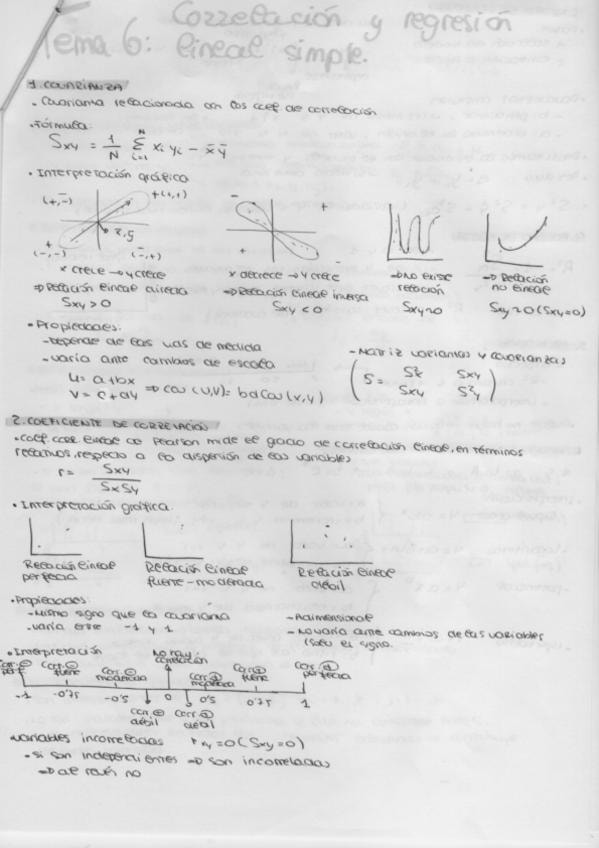 Tema 6: Correlación y regresión
lineal simple.
1. COVARIANZA
• Covarianza relacionada con los coef. de correlación
• Fórmula:
Sxy = 1/N Σ(i=1, N) xi yi − x̄ ȳ
• Interpretación gráfica
(+,-) +(+,+) - +
x̄,ȳ
+ (-,-) (-,+) + -
x crece → y crece x decrece → y crece → No existe relación → Relación no lineal
⇒ Relación lineal directa ⇒ Relación lineal inversa
Sxy > 0 Sxy < 0 Sxy ≈ 0 Sxy ≈ 0 (Sxy = 0)
• Propiedades:
- Depende de las uds de medida
- varía ante cambios de escala
u = a+bx
v = c+dy ⇒ cov (u,v) = bd cov (x,y)
- Matriz varianzas y covarianzas
(S = S²x Sxy
Sxy S²y)
2. COEFICIENTE DE CORRELACIÓN
• Coef. corr. lineal de Pearson mide el grado de correlación lineal, en términos
relativos, respecto a la dispersión de las variables
r = Sxy / Sx Sy
• Interpretación gráfica.
Relación lineal perfecta
Relación lineal fuerte-moderada
Relación lineal débil
• Propiedades:
- Mismo signo que la covarianza
- varía entre -1 y 1
- Adimensional
- No varía ante cambios de las variables
(solo el signo.
• Interpretación
Corr. ⊖ perf. Corr. ⊖ fuerte Corr. ⊖ moderada No hay correlación Corr. ⊕ moderada Corr. ⊕ fuerte Corr. ⊕ perfecta
-1 -0'75 -0'5 0 0'5 0'75 1
corr. ⊖ débil corr. ⊕ débil
variables incorreladas rxy = 0 (Sxy = 0)
• si son independientes ⇒ son incorreladas
⇒ al revés no